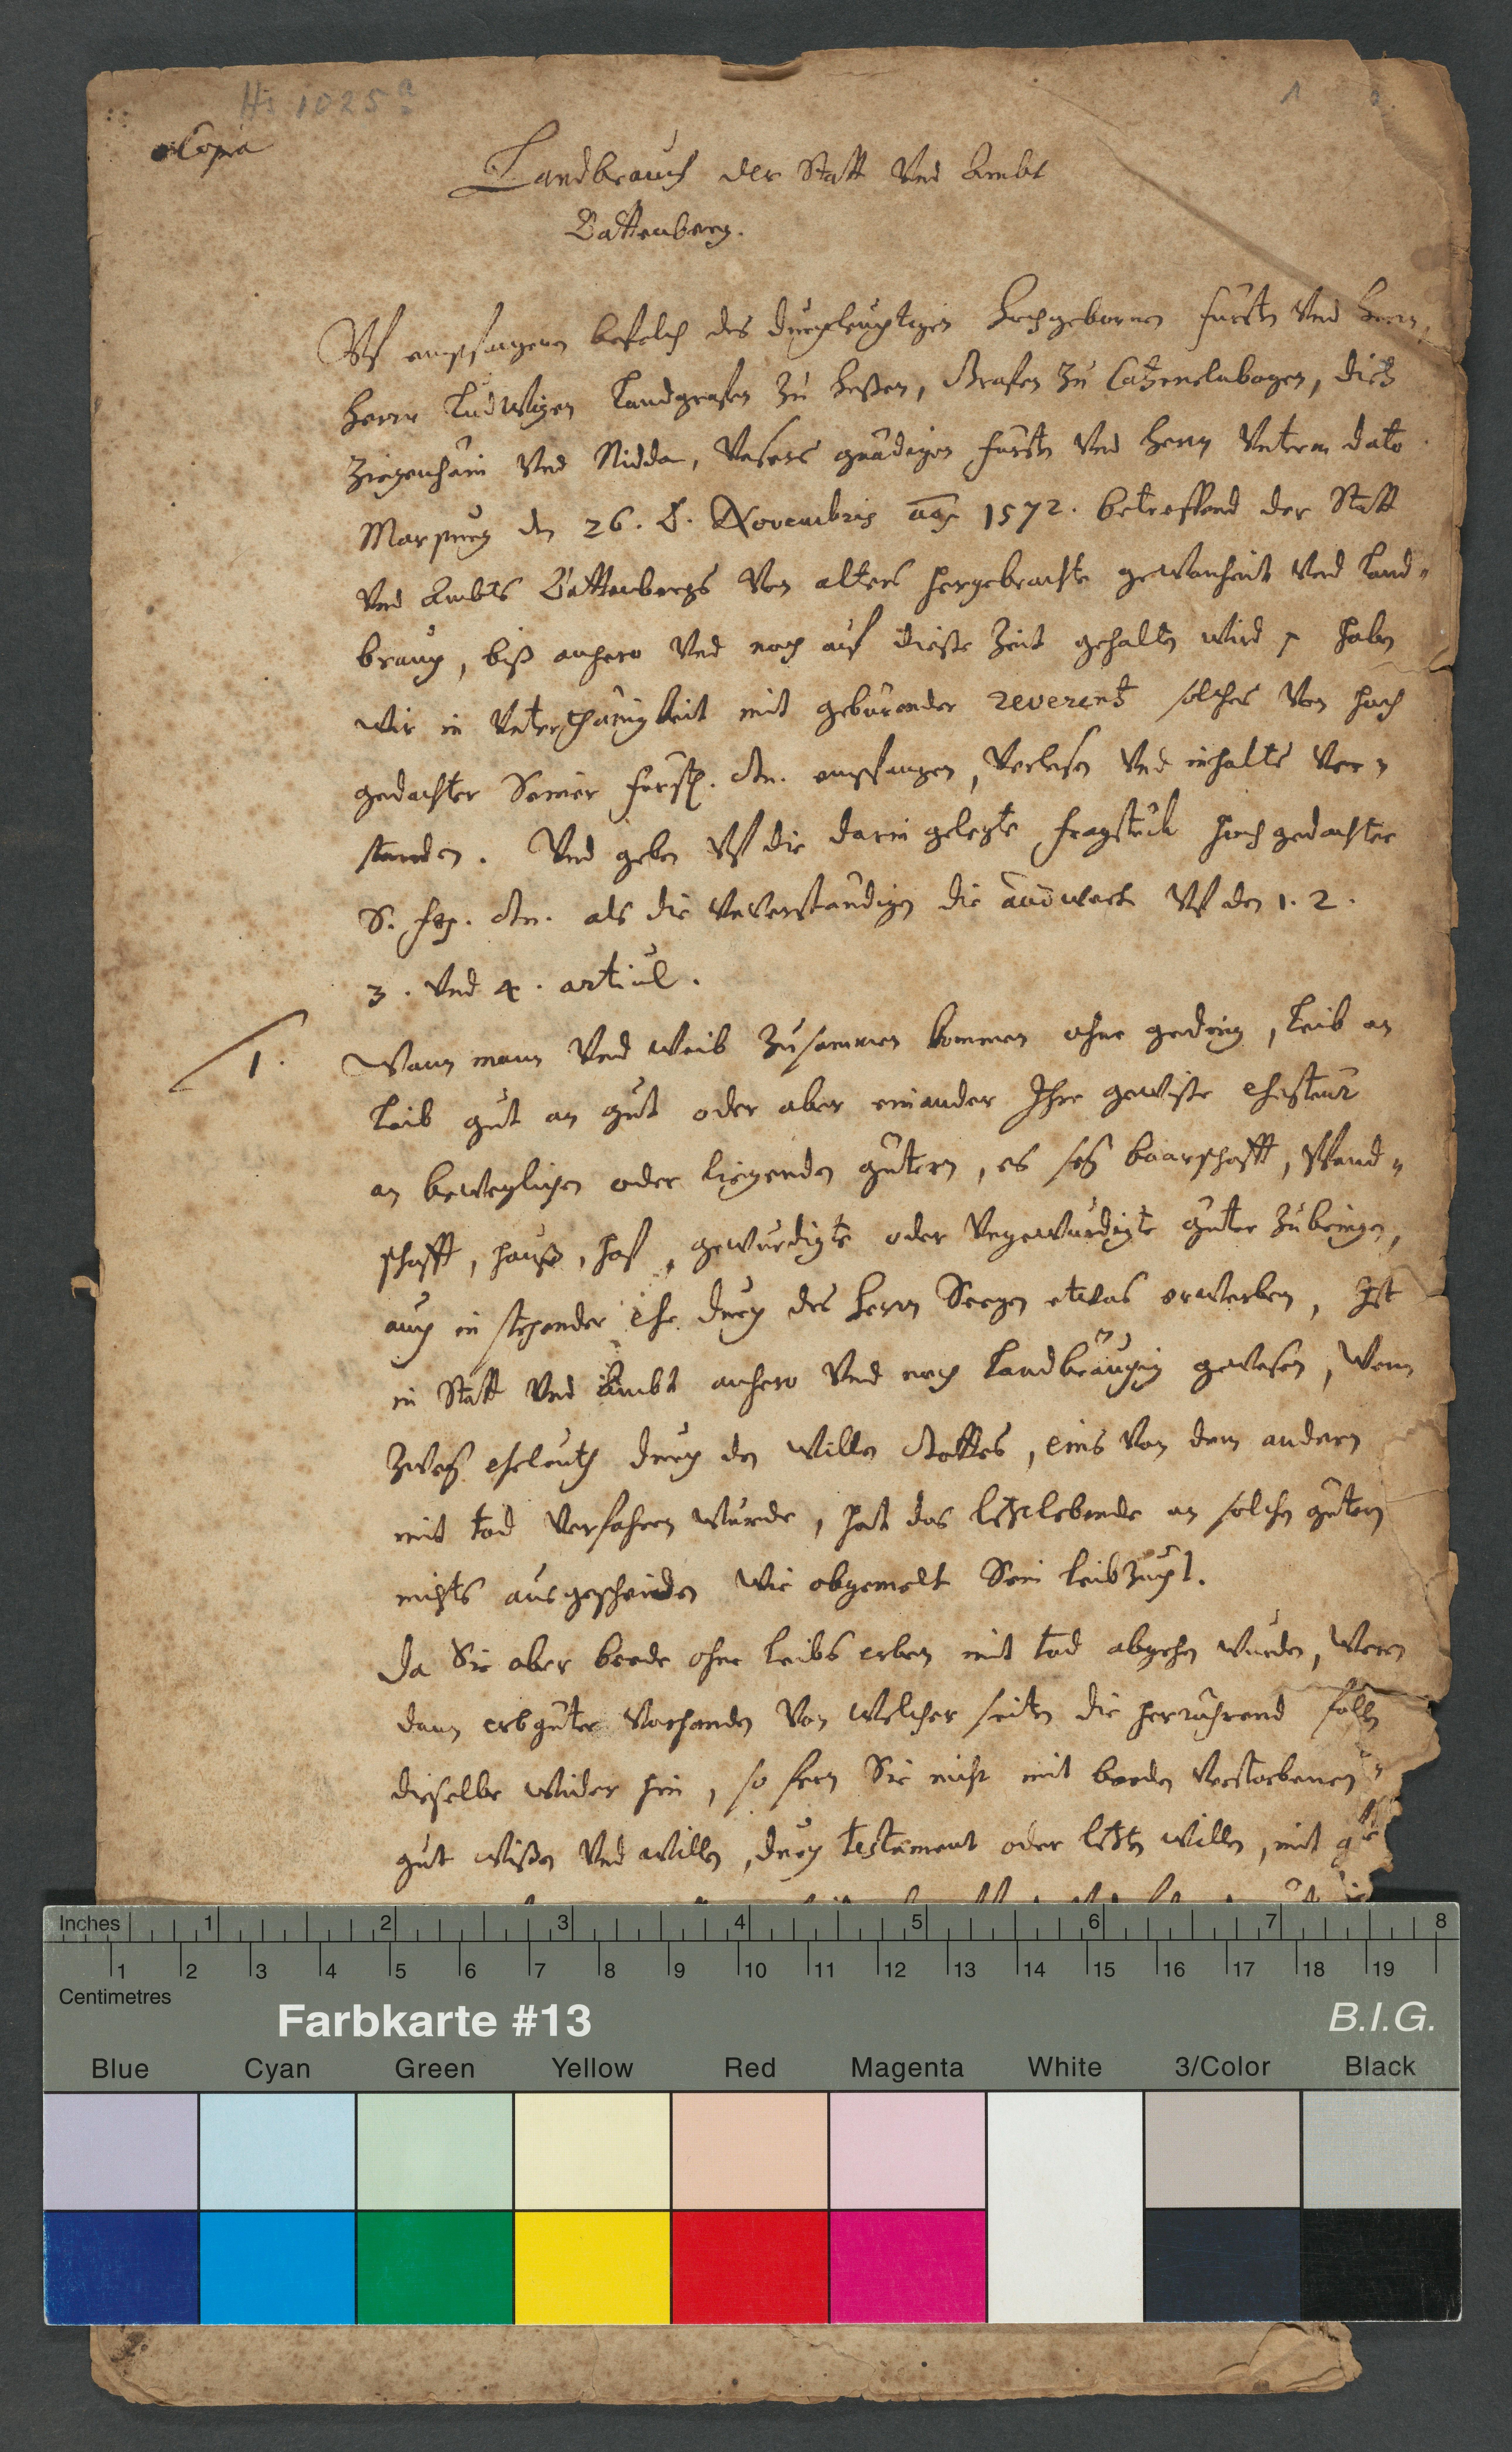 Hs 1025a
1
Copia
Landbrauch der Statt Vnd Ambt
Battenberg.
Vf empfangenen befelch des durchleuchtigen Hochgebornen Fürsten Vnd Herrn,
Herrn Ludwigen Landgrafen zu Heßen, Grafen zu Catzenelnbogen, Dietz
Ziegenhain Vnd Nidda, Vnsers gnädigen Fürsten Vnd Herrn Vnterm dato
Marpurg den 26. 8. Novembris año 1572. betreffend der Statt
Vnd Ambts Battenbergs Von alters hergebrachte gewonheit Vnd Land-
brauch, biß anhero Vnd noch auf dieße Zeit gehalten wird, haben
wir in Vnterthänigkeit mit gebürender reverentz solches Von hoch
gedachter Seiner Fürstl. Gn. empfangen, Verlesen Vnd inhalts Ver-
standen. Vnd geben Vf die darin gelegte fragstück hochgedachter
S. F. Gn. als die Vnverständigen die andwort Vf den 1. 2.
3. Vnd 4. articul.
1. Wann mann Vnd weib zusammen kommen ohne geding, leib an
leib gut an gut oder aber einander Ihre gewiße ehesteur
an beweglichen oder liegenden gütern, es seÿ baarschafft, Pfand-
schafft, hauß, hof, gewürdigte oder Vngewürdigte güter zubringen,
auch in stehender ehe durch des Herrn Seegen etwas erwerben, Ist
in Statt Vnd Ambt anhero Vnd noch Landbräuchig gewesen, Wenn
zweÿ eheleuth durch den Willen Gottes, eins Von dem andern
mit tod Verfahren würde, hat das letztlebende an solchen gütern
nichts ausgescheiden wie obgemelt Sein leibzucht.
Da Sie aber beede ohne leibs erben mit tod abgehen würden, Wern
dann erbgüter Vorhanden Von welcher seiten die herrührend sollen
dieselbe Wider hin, so fern Sie nicht mit beeden Verstorbenen
gut wißen Vnd willen, durch testament oder letzten willen, mit
Inches 1 2 3 4 5 6 7 8
1 2 3 4 5 6 7 8 9 10 11 12 13 14 15 16 17 18 19
Centimetres
Farbkarte #13
B.I.G.
Blue Cyan Green Yellow Red Magenta White 3/Color Black